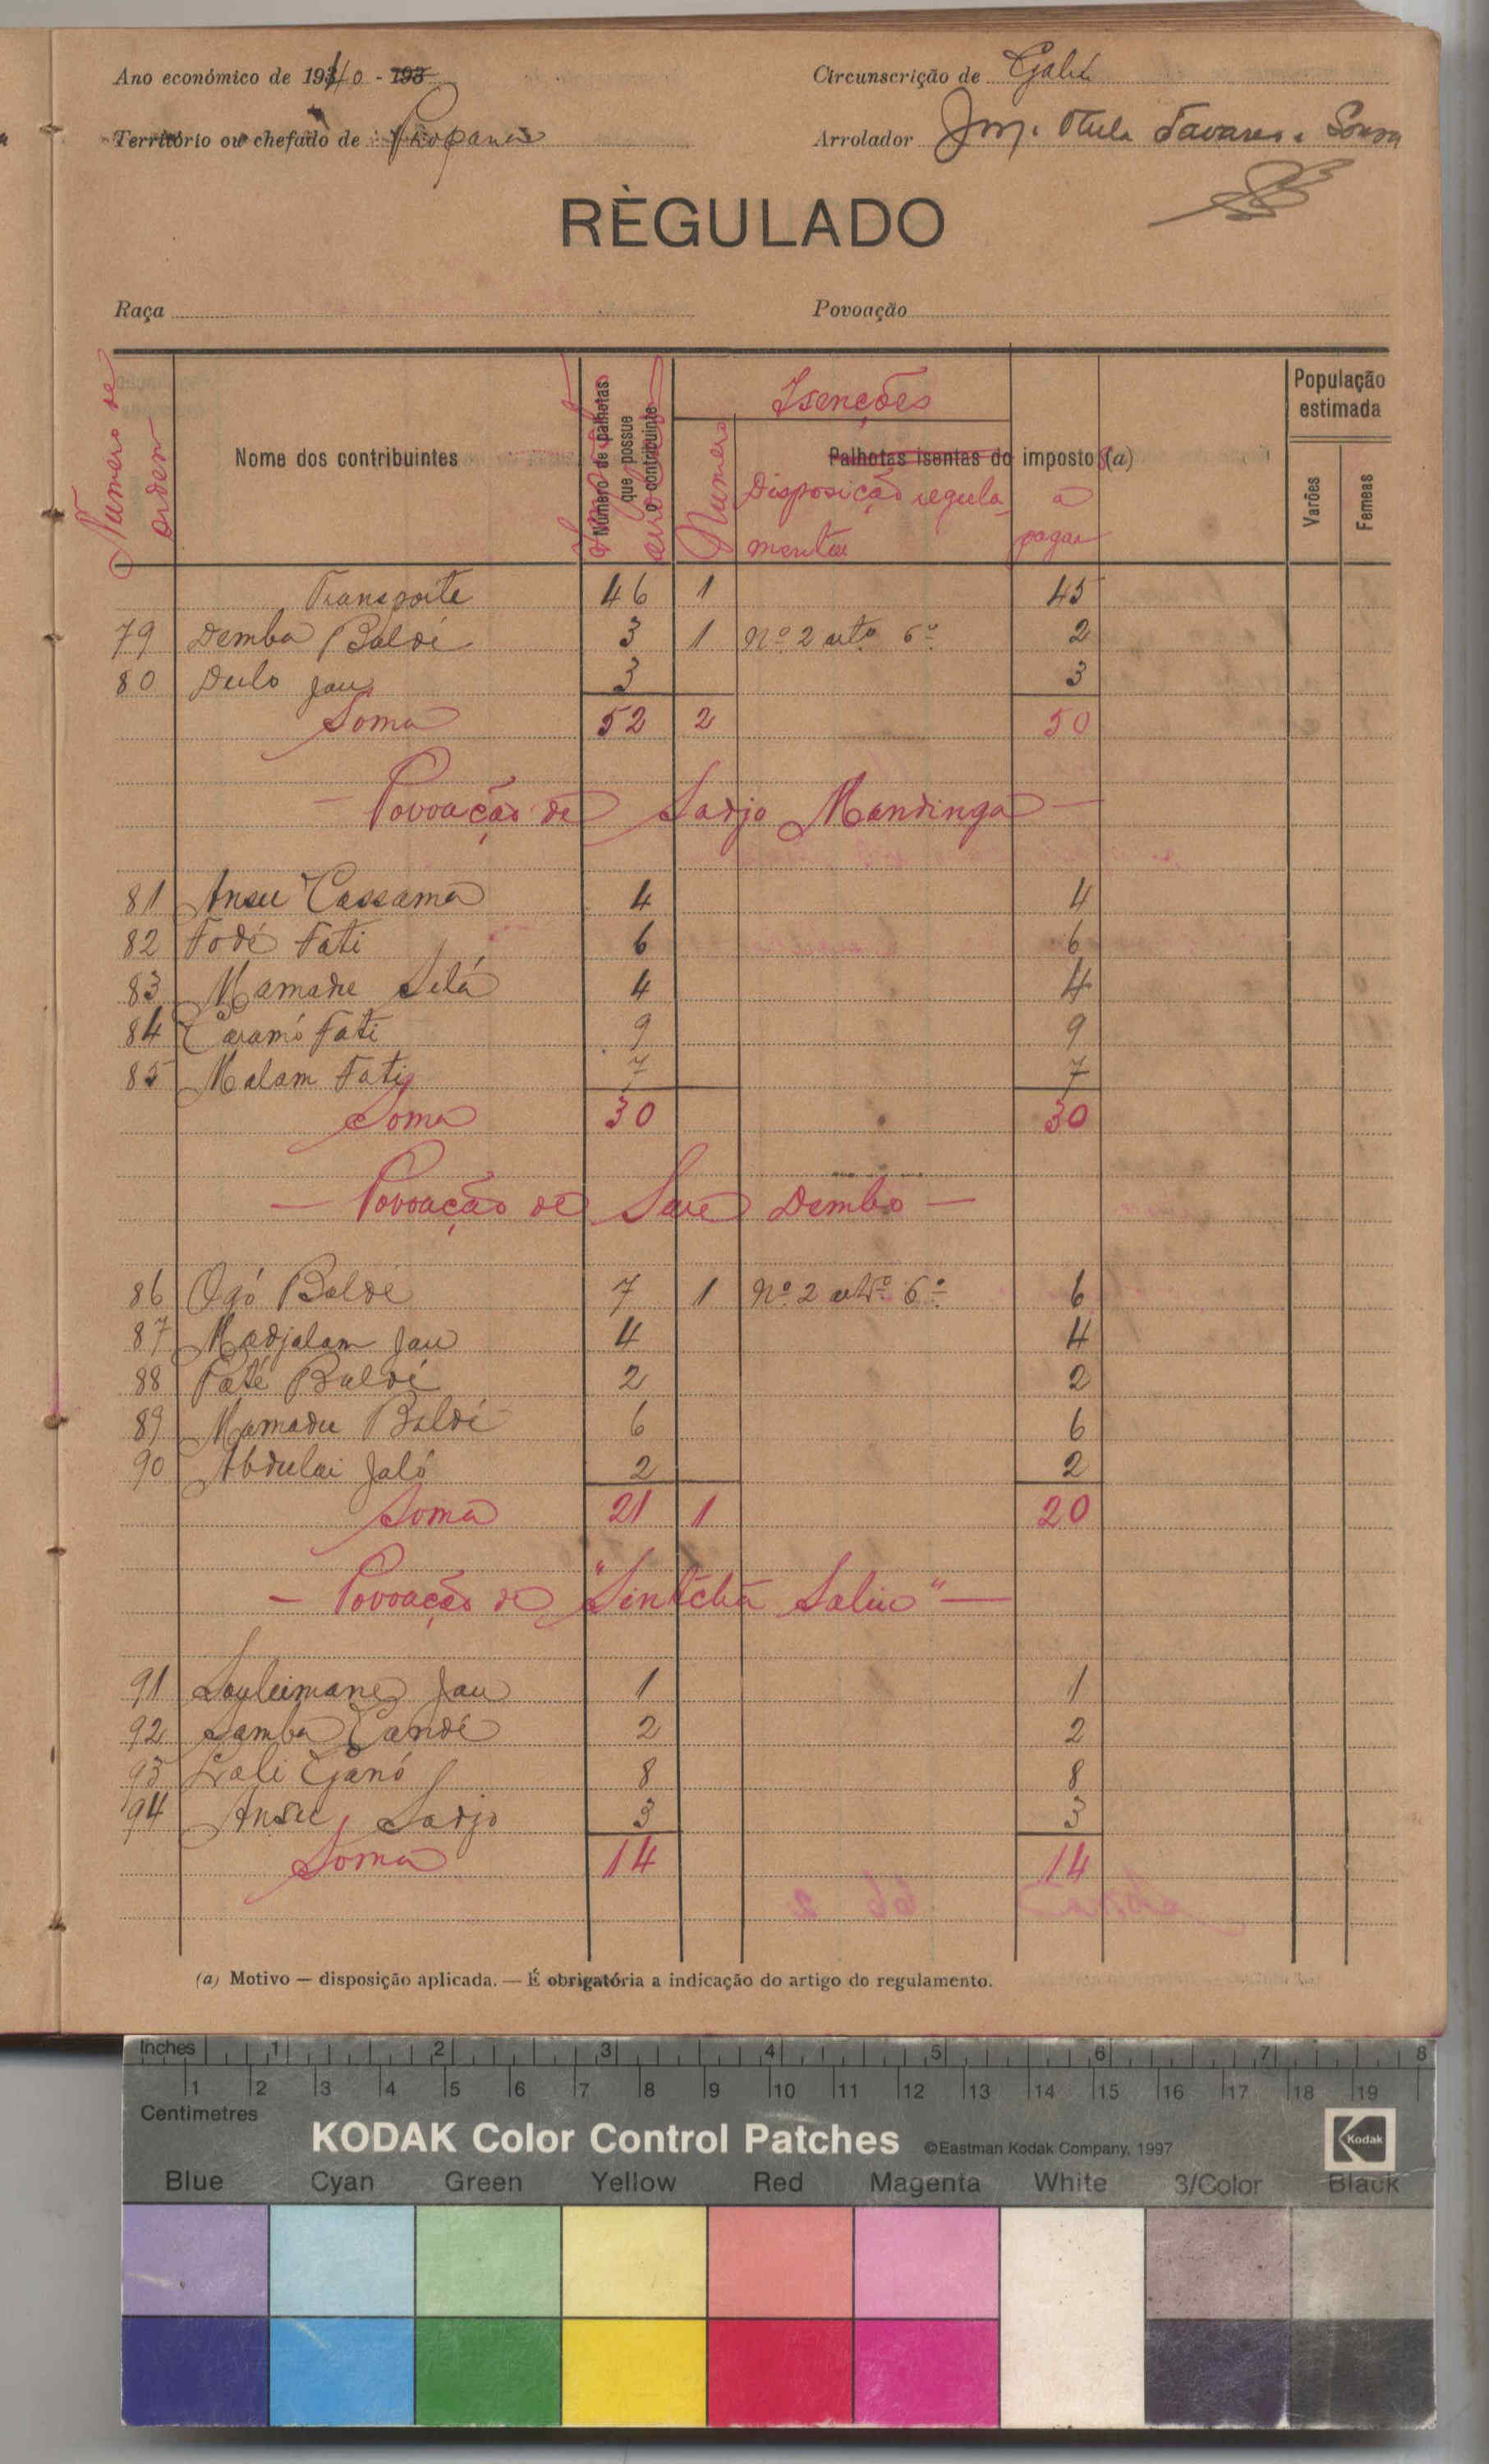 Ano económico de 1940 - 193
Circunscrição de Gabú
Território ou chefado de Propana
Arrolador Tavares e Sousa
RÈGULADO
Raça
Povoação
Numero de ordem
Nome dos contribuintes
Número de palhotas que possue o contribuinte
Isenções
Numero
Palhotas isentas do imposto (a)
Disposição regulamentar
a pagar
População estimada
Varões
Femeas
Transporte 46 1 45
79 Demba Baldé 3 1 Nº 2 artº 6º 2
80 Dulo Jau 3 3
Soma 52 2 50
— Povoação de Sadjo Mandinga —
81 Ansu Cassama 4 4
82 Fodé Fati 6 6
83 Mamadu Selá 4 4
84 Caramó Fati 9 9
85 Malam Fati 7 7
Soma 30 30
— Povoação de Sare Dembo —
86 Ogó Baldé 7 1 Nº 2 artº 6º 6
87 Madjalam Jau 4 4
88 Paté Baldé 2 2
89 Mamadu Baldé 6 6
90 Abdulai Jaló 2 2
Soma 21 1 20
— Povoação de "Sintchã Saliu" —
91 Souleimane Jau 1 1
92 Samba Candé 2 2
93 Lali Ganó 8 8
94 Ansu Sadjo 3 3
Soma 14 14
(a) Motivo — disposição aplicada. — É obrigatória a indicação do artigo do regulamento.
Inches 1 2 3 4 5 6 7 8
1 2 3 4 5 6 7 8 9 10 11 12 13 14 15 16 17 18 19
Centimetres
KODAK Color Control Patches ©Eastman Kodak Company, 1997
Kodak
Blue Cyan Green Yellow Red Magenta White 3/Color Black